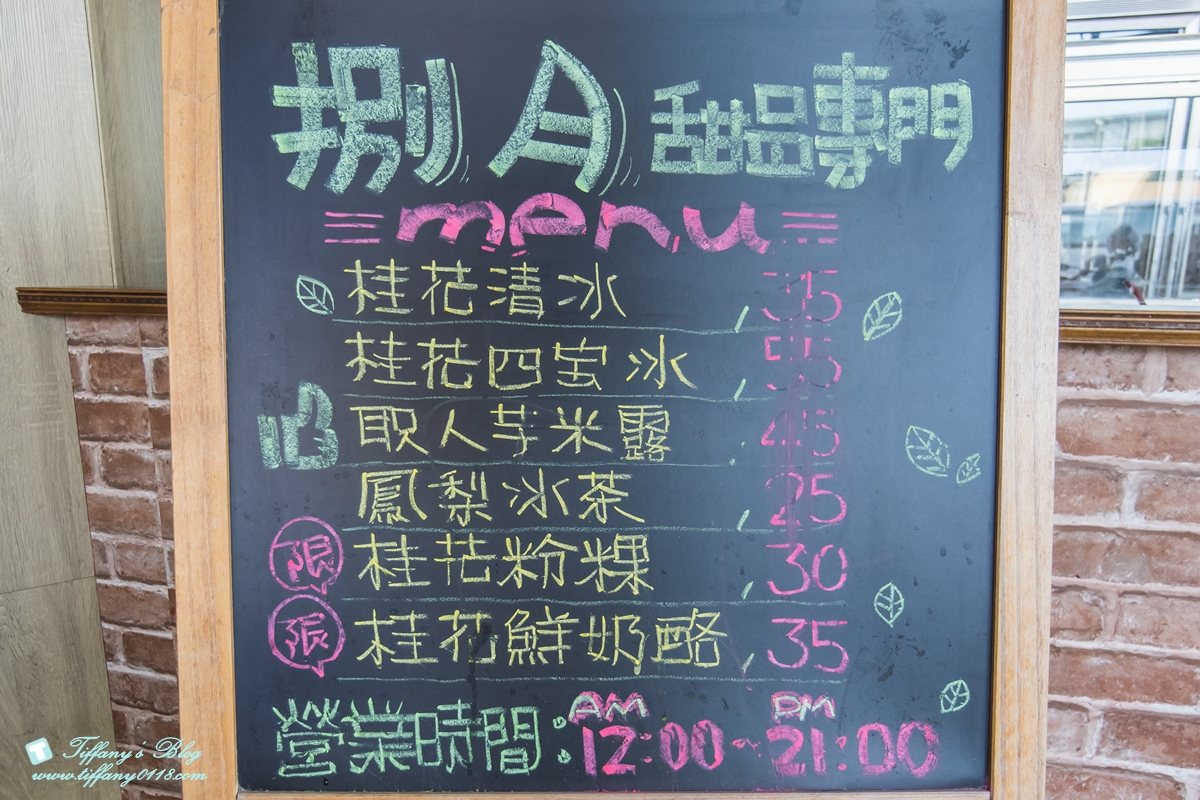 捌月甜品專門
menu
桂花清冰 35
桂花四宝冰 55
職人芋米露 45
鳳梨冰茶 25
限 桂花粉粿 30
限 桂花鮮奶酪 35
營業時間：AM 12:00~PM 21:00
Tiffany's Blog
www.tiffany0118.com